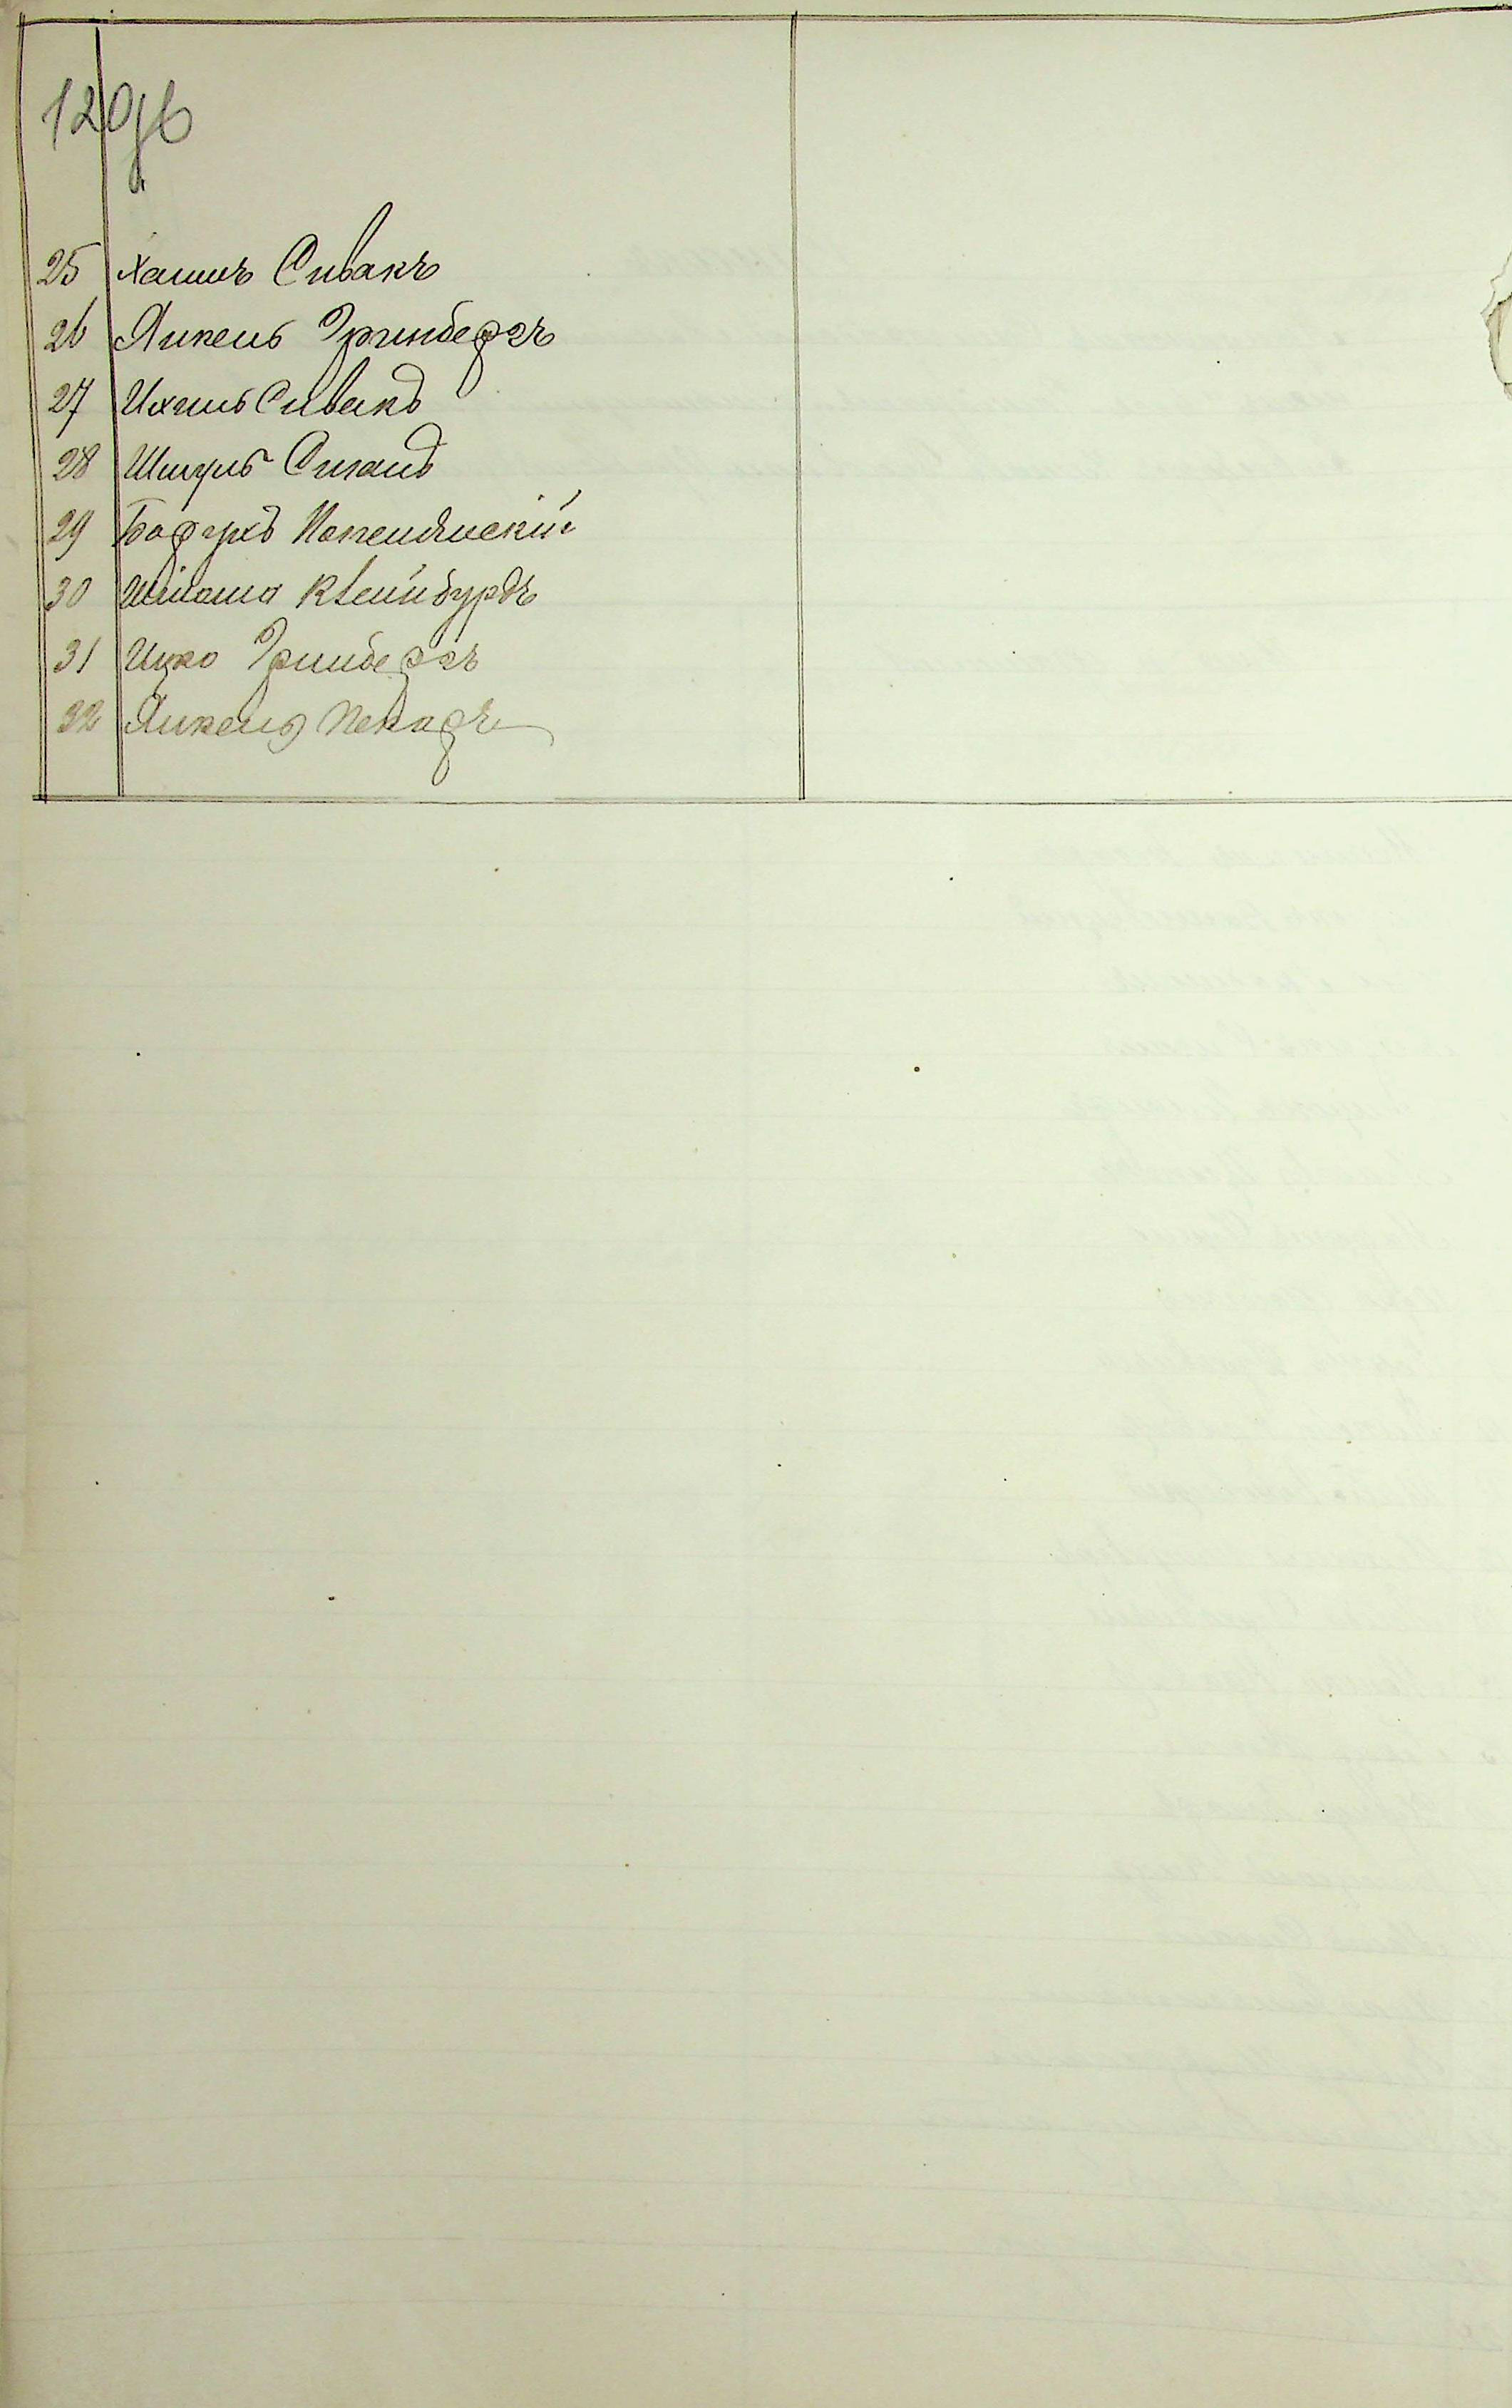 120б
25 Хаимъ Сивакъ
26 Янкель Гринбергъ
27 Ихиль Сивакъ
28 Шмуль Сигалъ
29 Борухъ Копелянскій
30 Шлiома Клейнбурдъ
31 Ицко Гринбергъ
32 Янкель Пекаръ